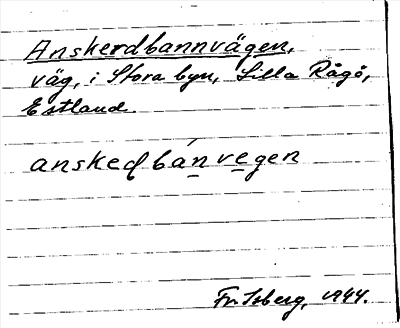 Anskerdbannvägen,
väg, i Stora byn, Lilla Rågö,
Estland.
anskeɖbánvegen
Fr. Isberg, 1944.